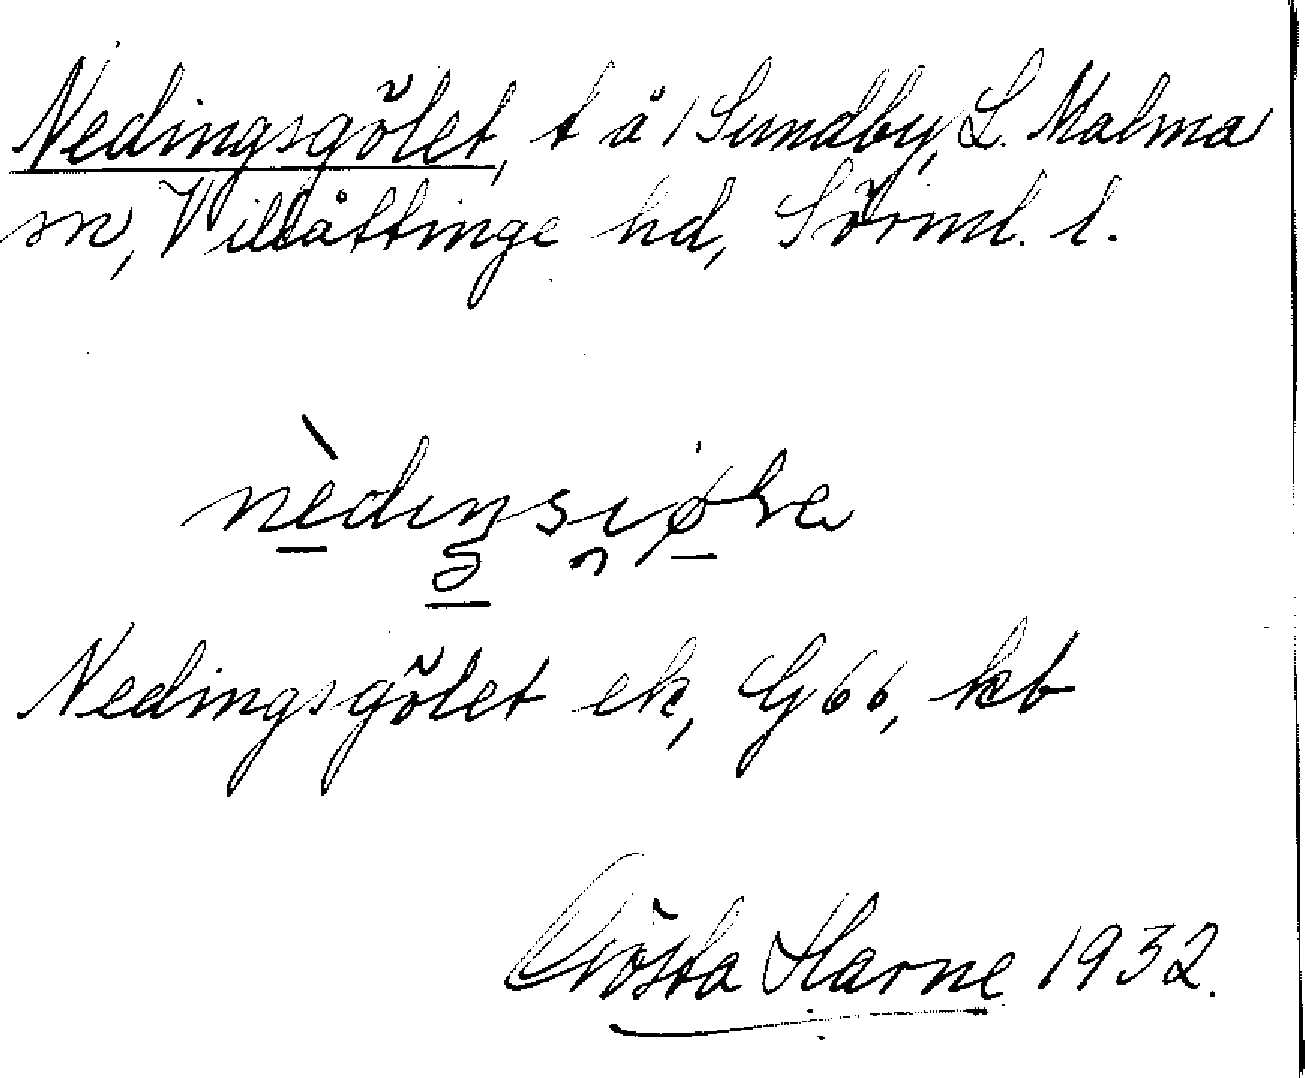 Nedingsgölet, t å 1 Sundby, L. Malma
sn, Villåttinge hd, Sörml. l.
Nedingsgölet ek, G66, kb
Gösta Harne 1932.